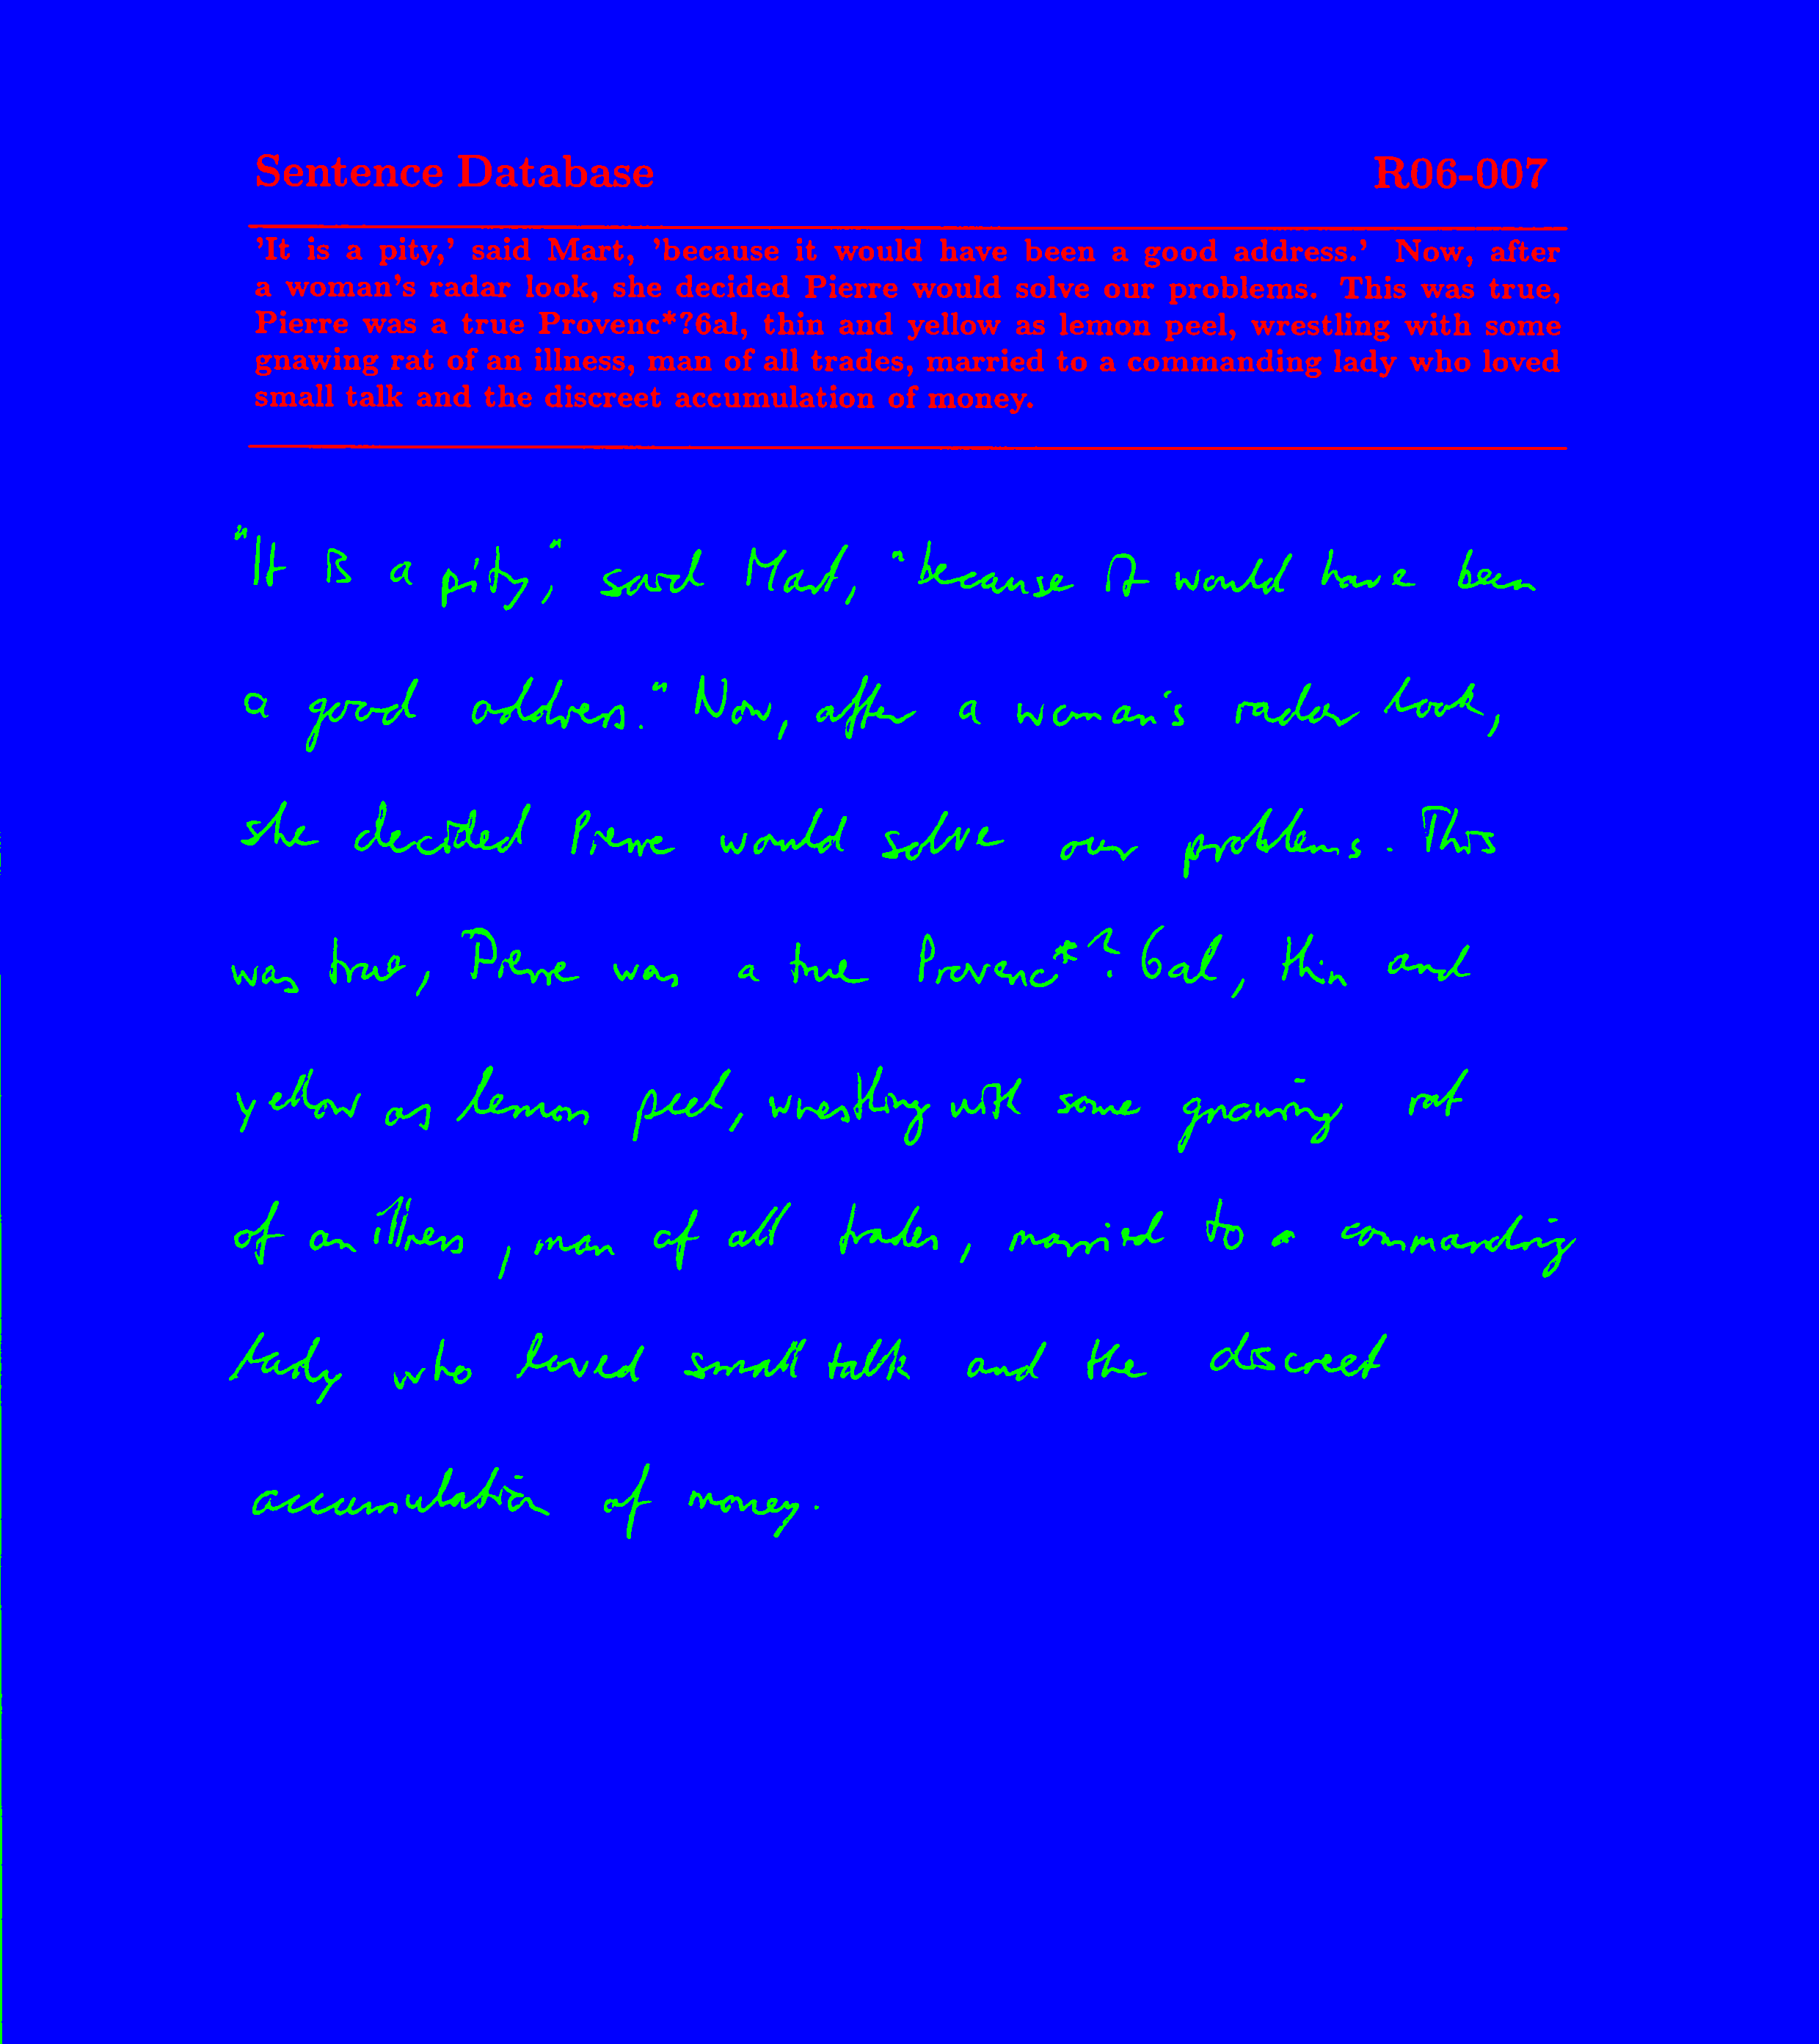 Sentence Database R06-007
'It is a pity,' said Mart, 'because it would have been a good address.' Now, after
a woman's radar look, she decided Pierre would solve our problems. This was true,
Pierre was a true Provenc*?6al, thin and yellow as lemon peel, wrestling with some
gnawing rat of an illness, man of all trades, married to a commanding lady who loved
small talk and the discreet accumulation of money.
"It is a pity," said Mart, "because it would have been
a good address." Now, after a woman's radar look,
she decided Pierre would solve our problems. This
was true, Pierre was a true Provenc*?6al, thin and
yellow as lemon peel, wrestling with some gnawing rat
of an illness, man of all trades, married to a commanding
lady who loved small talk and the discreet
accumulation of money.